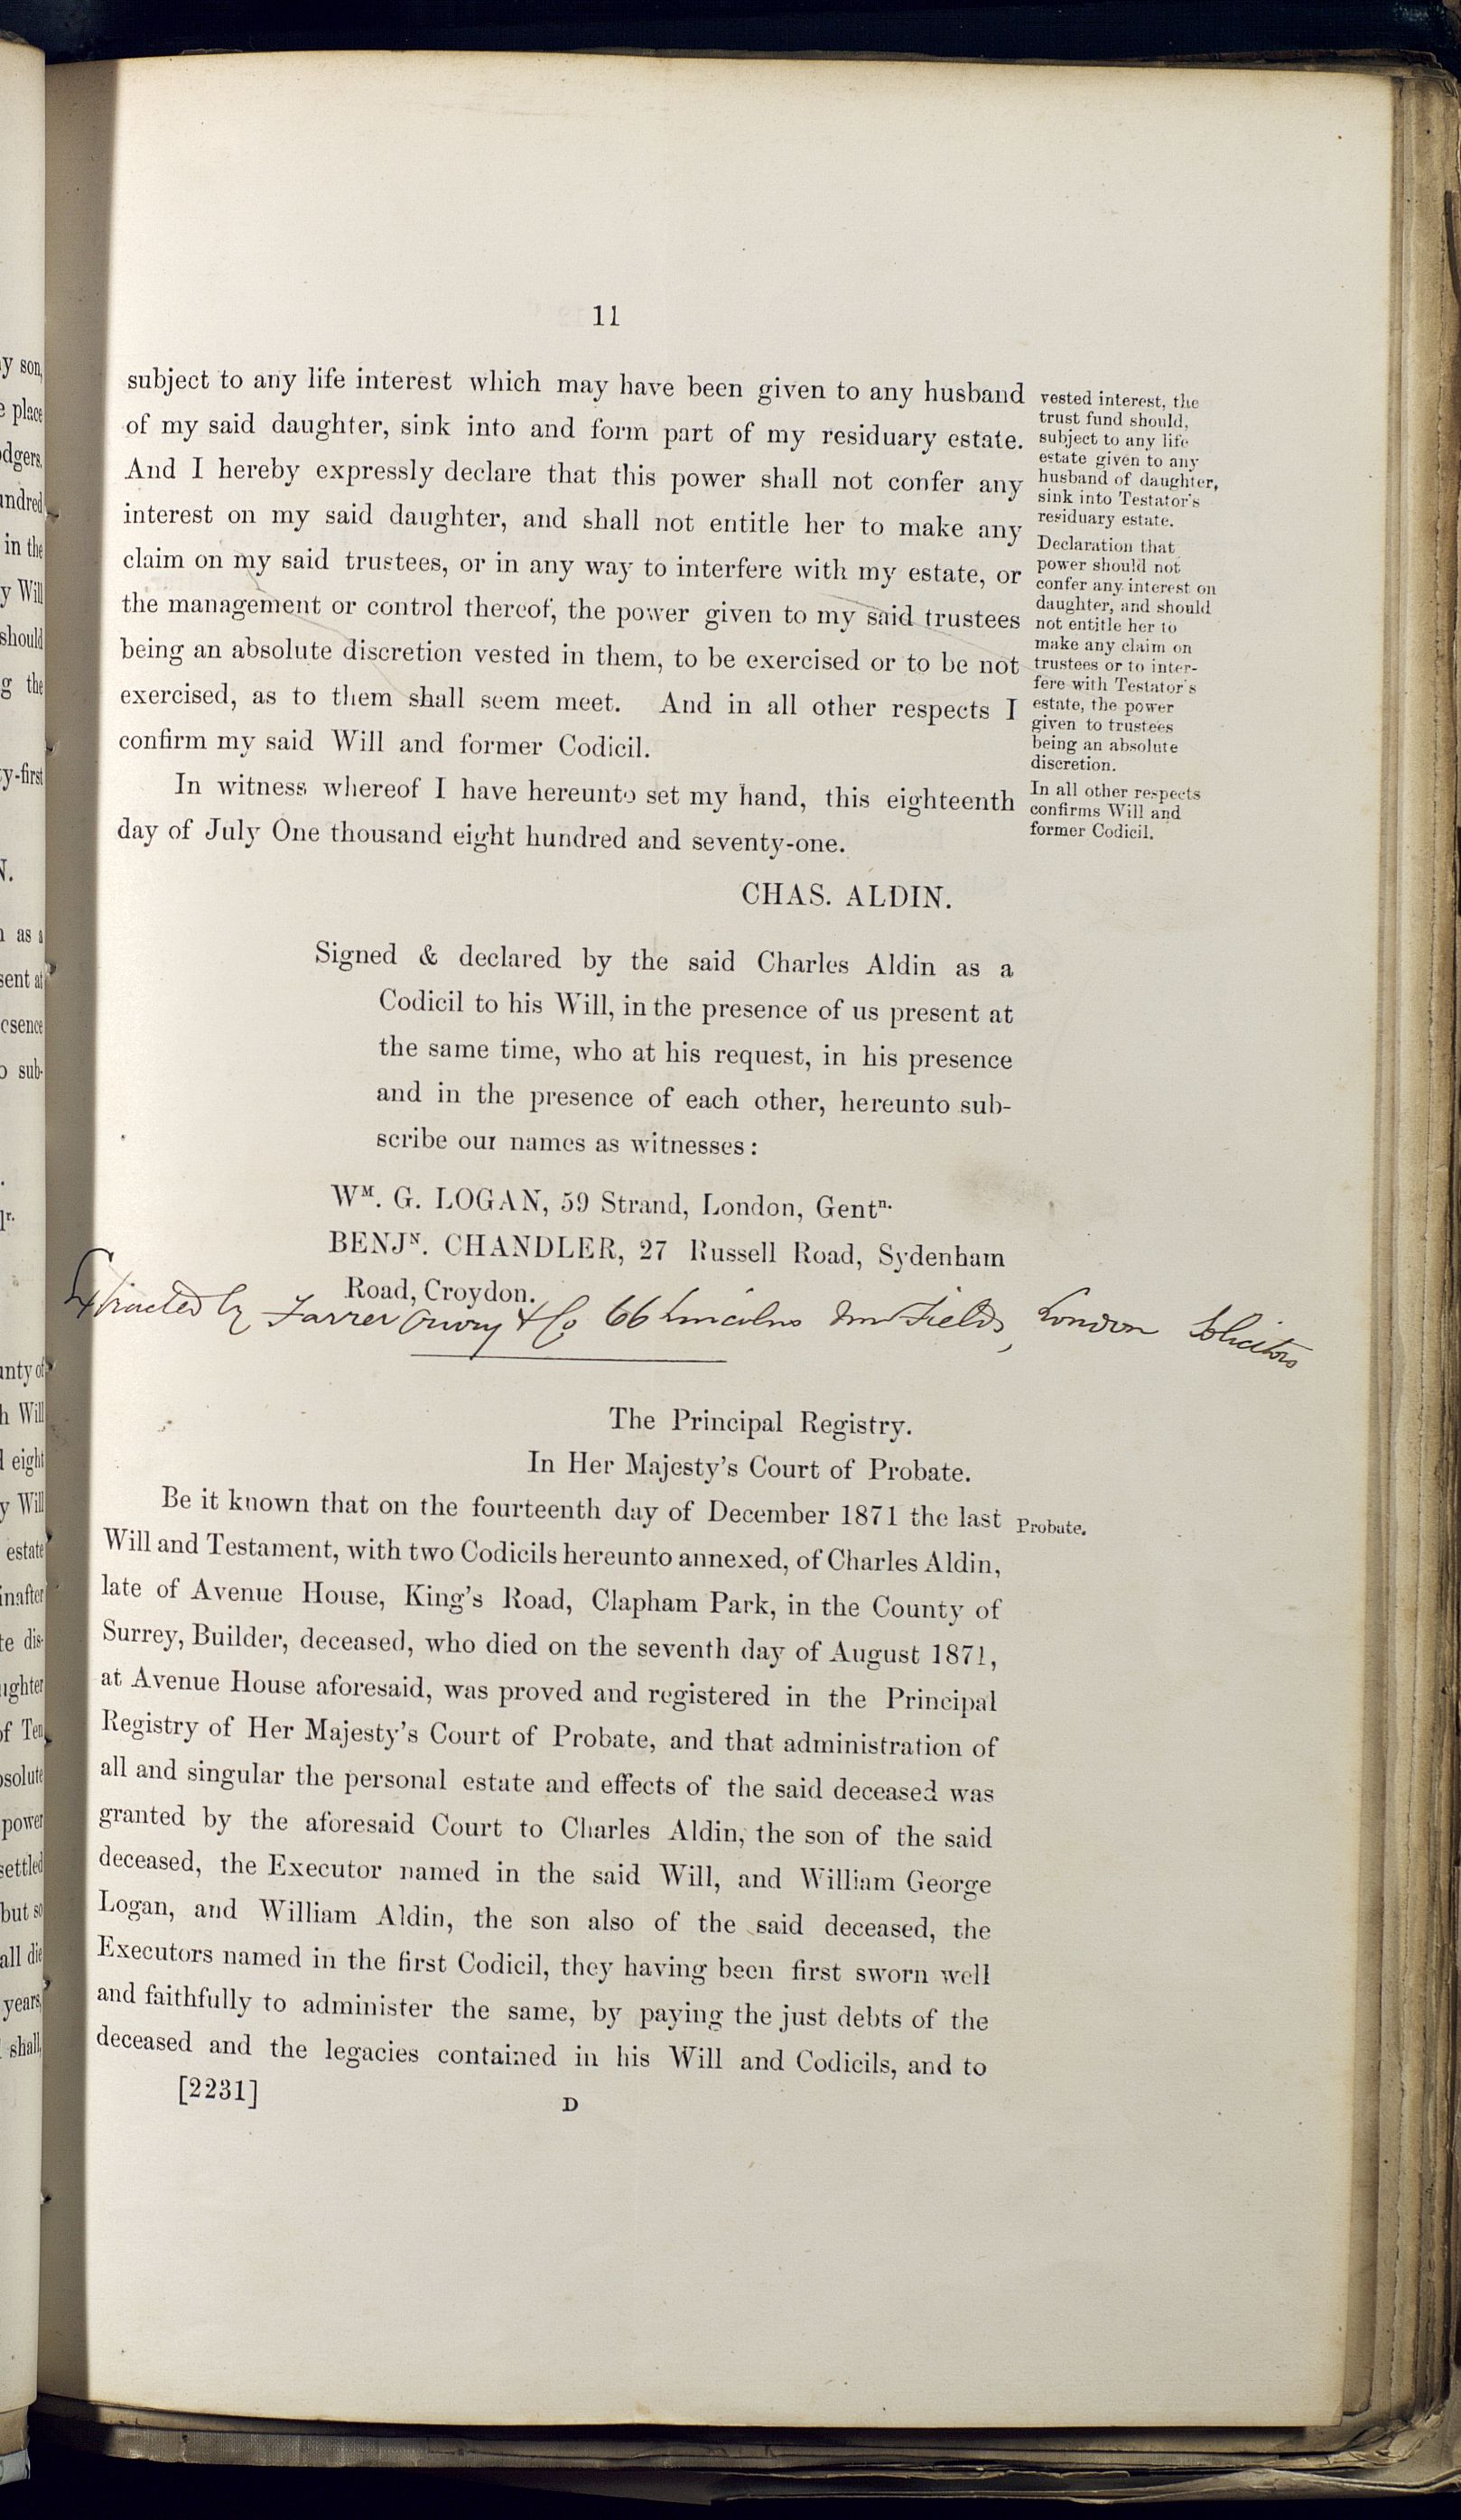 11
subject to any life interest which may have been given to any husband
of my said daughter, sink into and form part of my residuary estate.
And I hereby expressly declare that this power shall not confer any
interest on my said daughter, and shall not entitle her to make any
claim on my said trustees, or in any way to interfere with my estate, or
the management or control thereof, the power given to my said trustees
being an absolute discretion vested in them, to be exercised or to be not
exercised, as to them shall seem meet. And in all other respects I
confirm my said Will and former Codicil.
In witness whereof I have hereunto set my hand, this eighteenth
day of July One thousand eight hundred and seventy-one.
vested interest, the
trust fund should,
subject to any life
estate given to any
husband of daughter,
sink into Testator's
residuary estate.
Declaration that
power should not
confer any interest on
daughter, and should
not entitle her to
make any claim on
trustees or to inter-
fere with Testator's
estate, the power
given to trustees
being an absolute
discretion.
In all other respects
confirms Will and
former Codicil.
CHAS. ALDIN.
Signed & declared by the said Charles Aldin as a
Codicil to his Will, in the presence of us present at
the same time, who at his request, in his presence
and in the presence of each other, hereunto sub-
scribe our names as witnesses:
Wᴹ. G. LOGAN, 59 Strand, London, Gentⁿ.
BENJᴺ. CHANDLER, 27 Russell Road, Sydenham
Road, Croydon.
Extracted by Farrer Ouvry & Co 66 Lincolns Inn Fields, London Solicitors
The Principal Registry.
In Her Majesty's Court of Probate.
Be it known that on the fourteenth day of December 1871 the last
Probate.
Will and Testament, with two Codicils hereunto annexed, of Charles Aldin,
late of Avenue House, King's Road, Clapham Park, in the County of
Surrey, Builder, deceased, who died on the seventh day of August 1871,
at Avenue House aforesaid, was proved and registered in the Principal
Registry of Her Majesty's Court of Probate, and that administration of
all and singular the personal estate and effects of the said deceased was
granted by the aforesaid Court to Charles Aldin, the son of the said
deceased, the Executor named in the said Will, and William George
Logan, and William Aldin, the son also of the said deceased, the
Executors named in the first Codicil, they having been first sworn well
and faithfully to administer the same, by paying the just debts of the
deceased and the legacies contained in his Will and Codicils, and to
[2231]
D